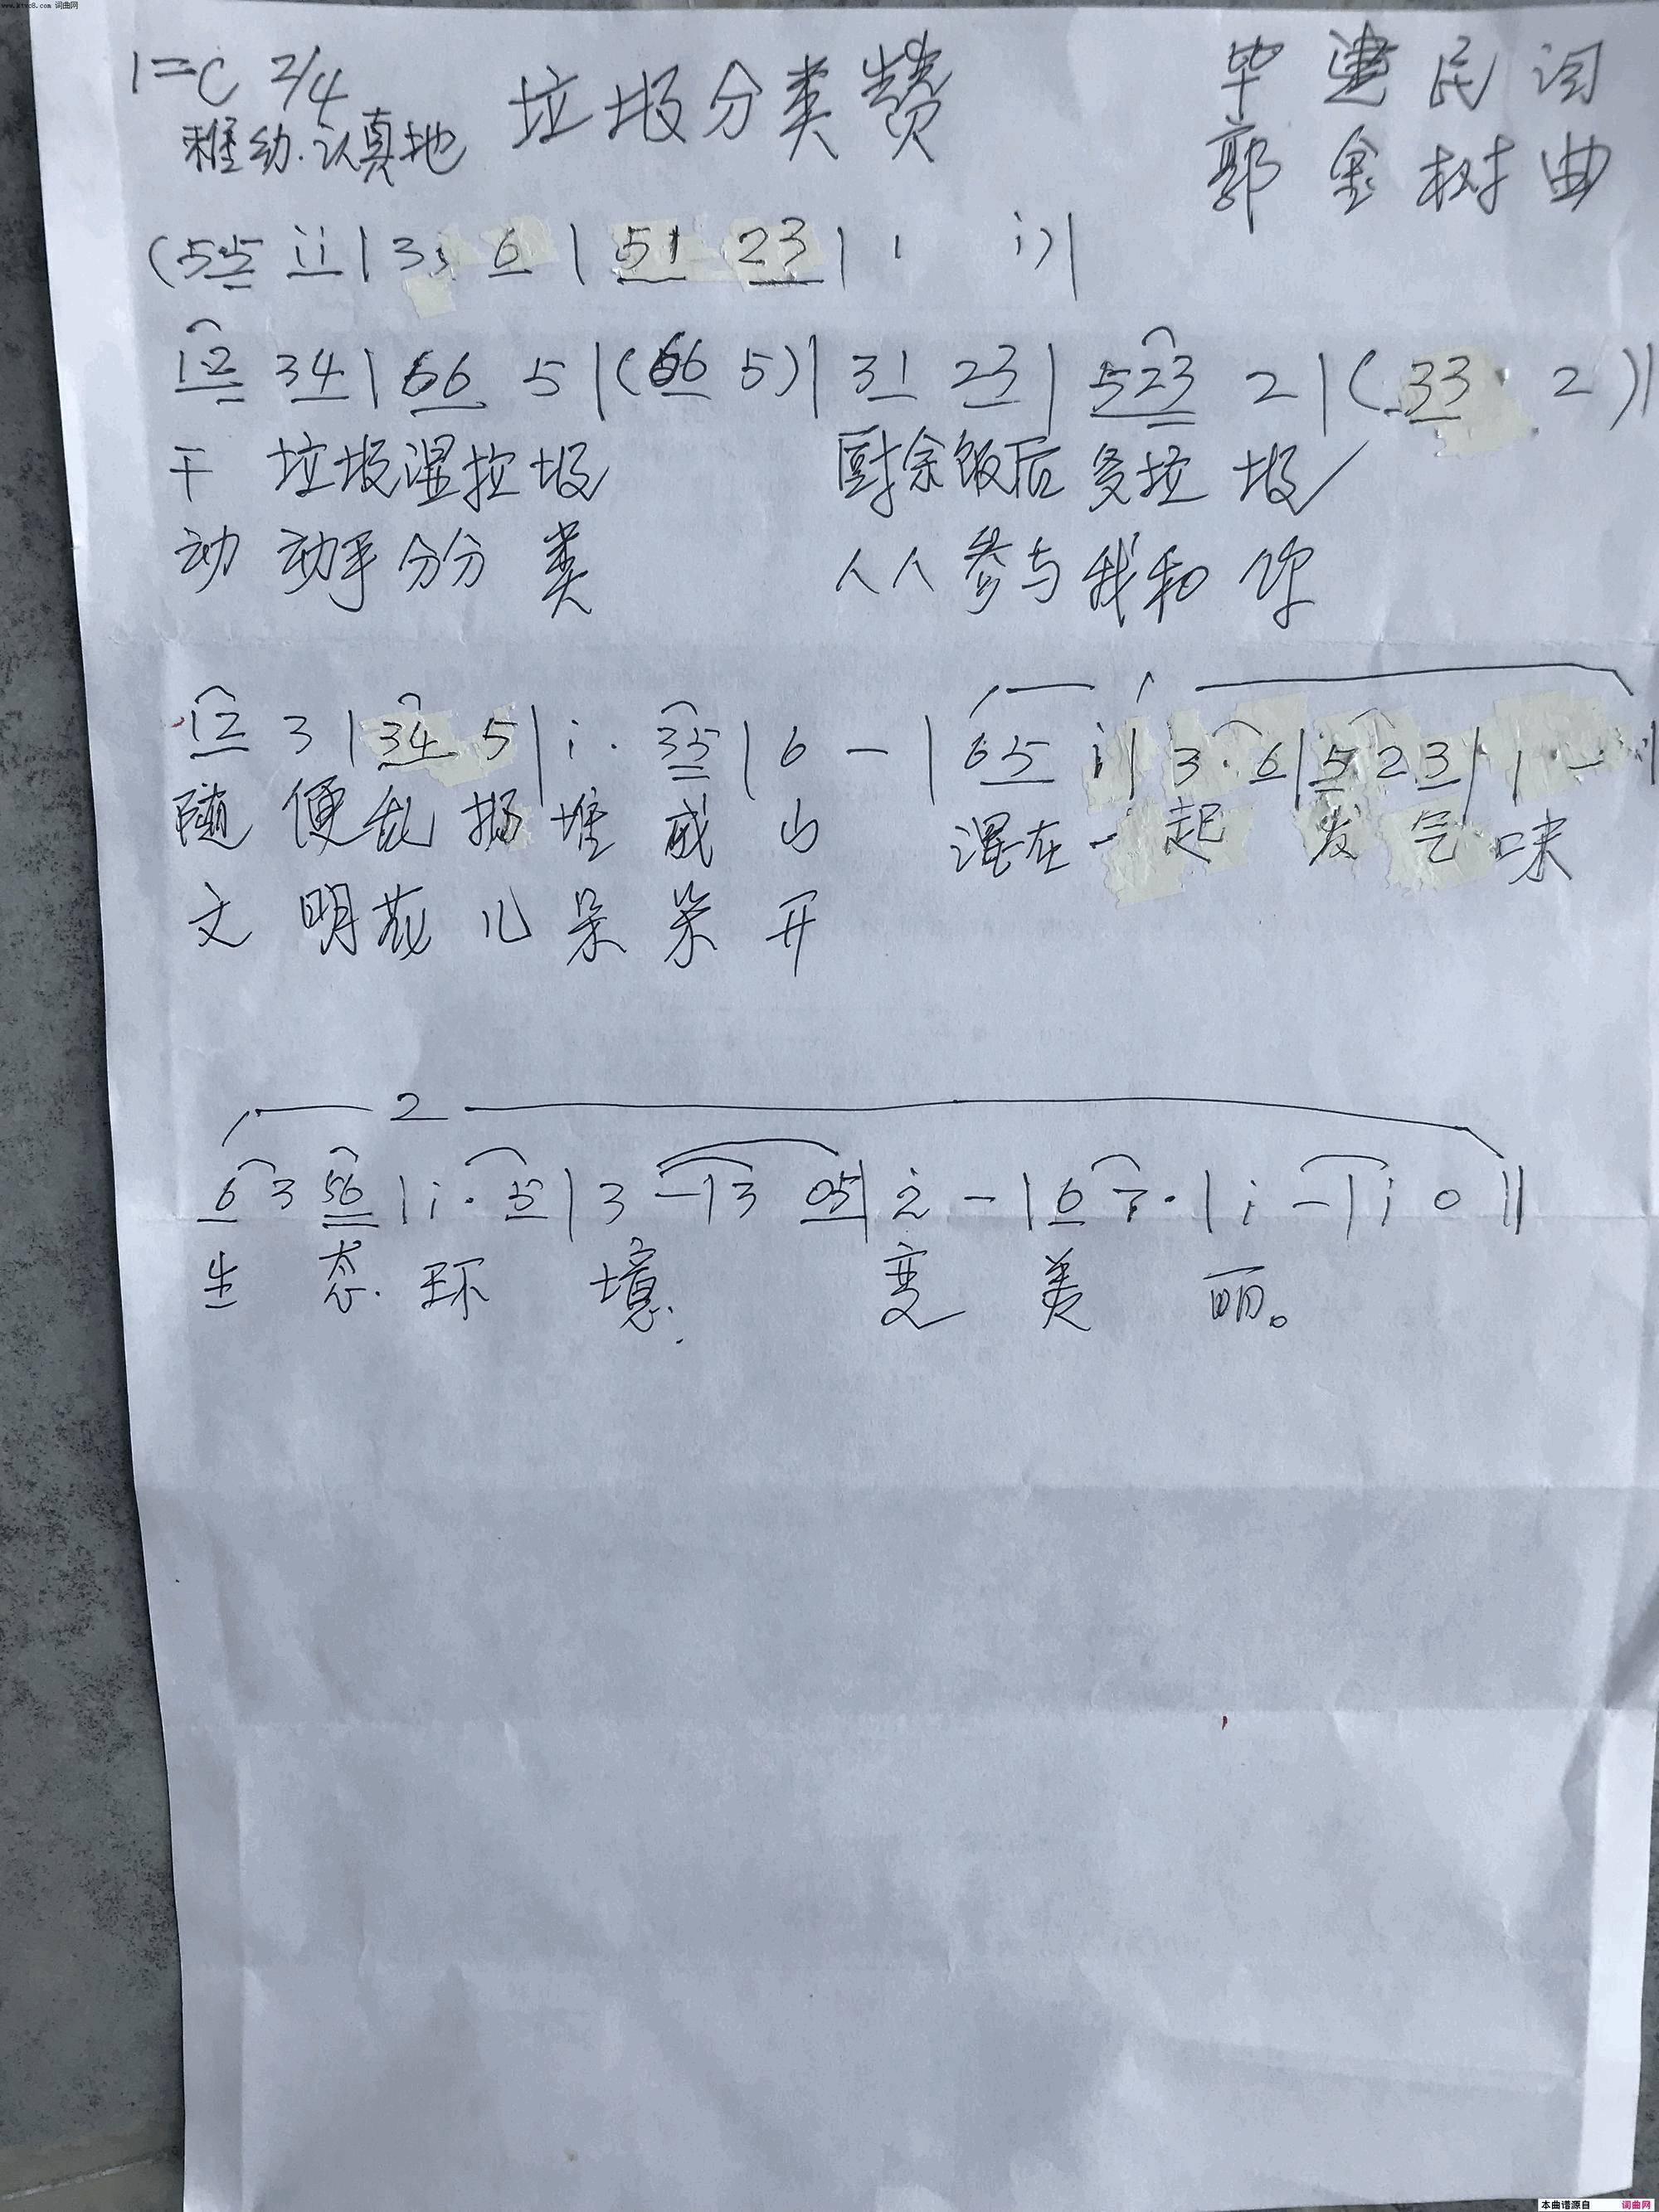 www.ktvc8.com 词曲网
1=C 2/4 垃圾分类赞 毕建民词
稚幼.认真地 郭金树曲
(55 i i | 3. 6 | 51 23 | 1 i) |
12 34 | 66 5 | (66 5) | 31 23 | 523 2 | (33 2) |
干垃圾湿垃圾 厨余饭后多垃圾
动动手分分类 人人参与我和你
12 3 | 34 5 | i · 35 | 6 - | 65 i | 3 · 6 | 5 2 3 | 1 - :|
随便乱扬堆成山 混在一起发气味
文明花儿朵朵开
2
6 3 56 | i · 5 | 3 - | 3 05 | 2 - | 6 7 · | i - | i 0 ||
生态环境 变美丽。
本曲谱源自 词曲网